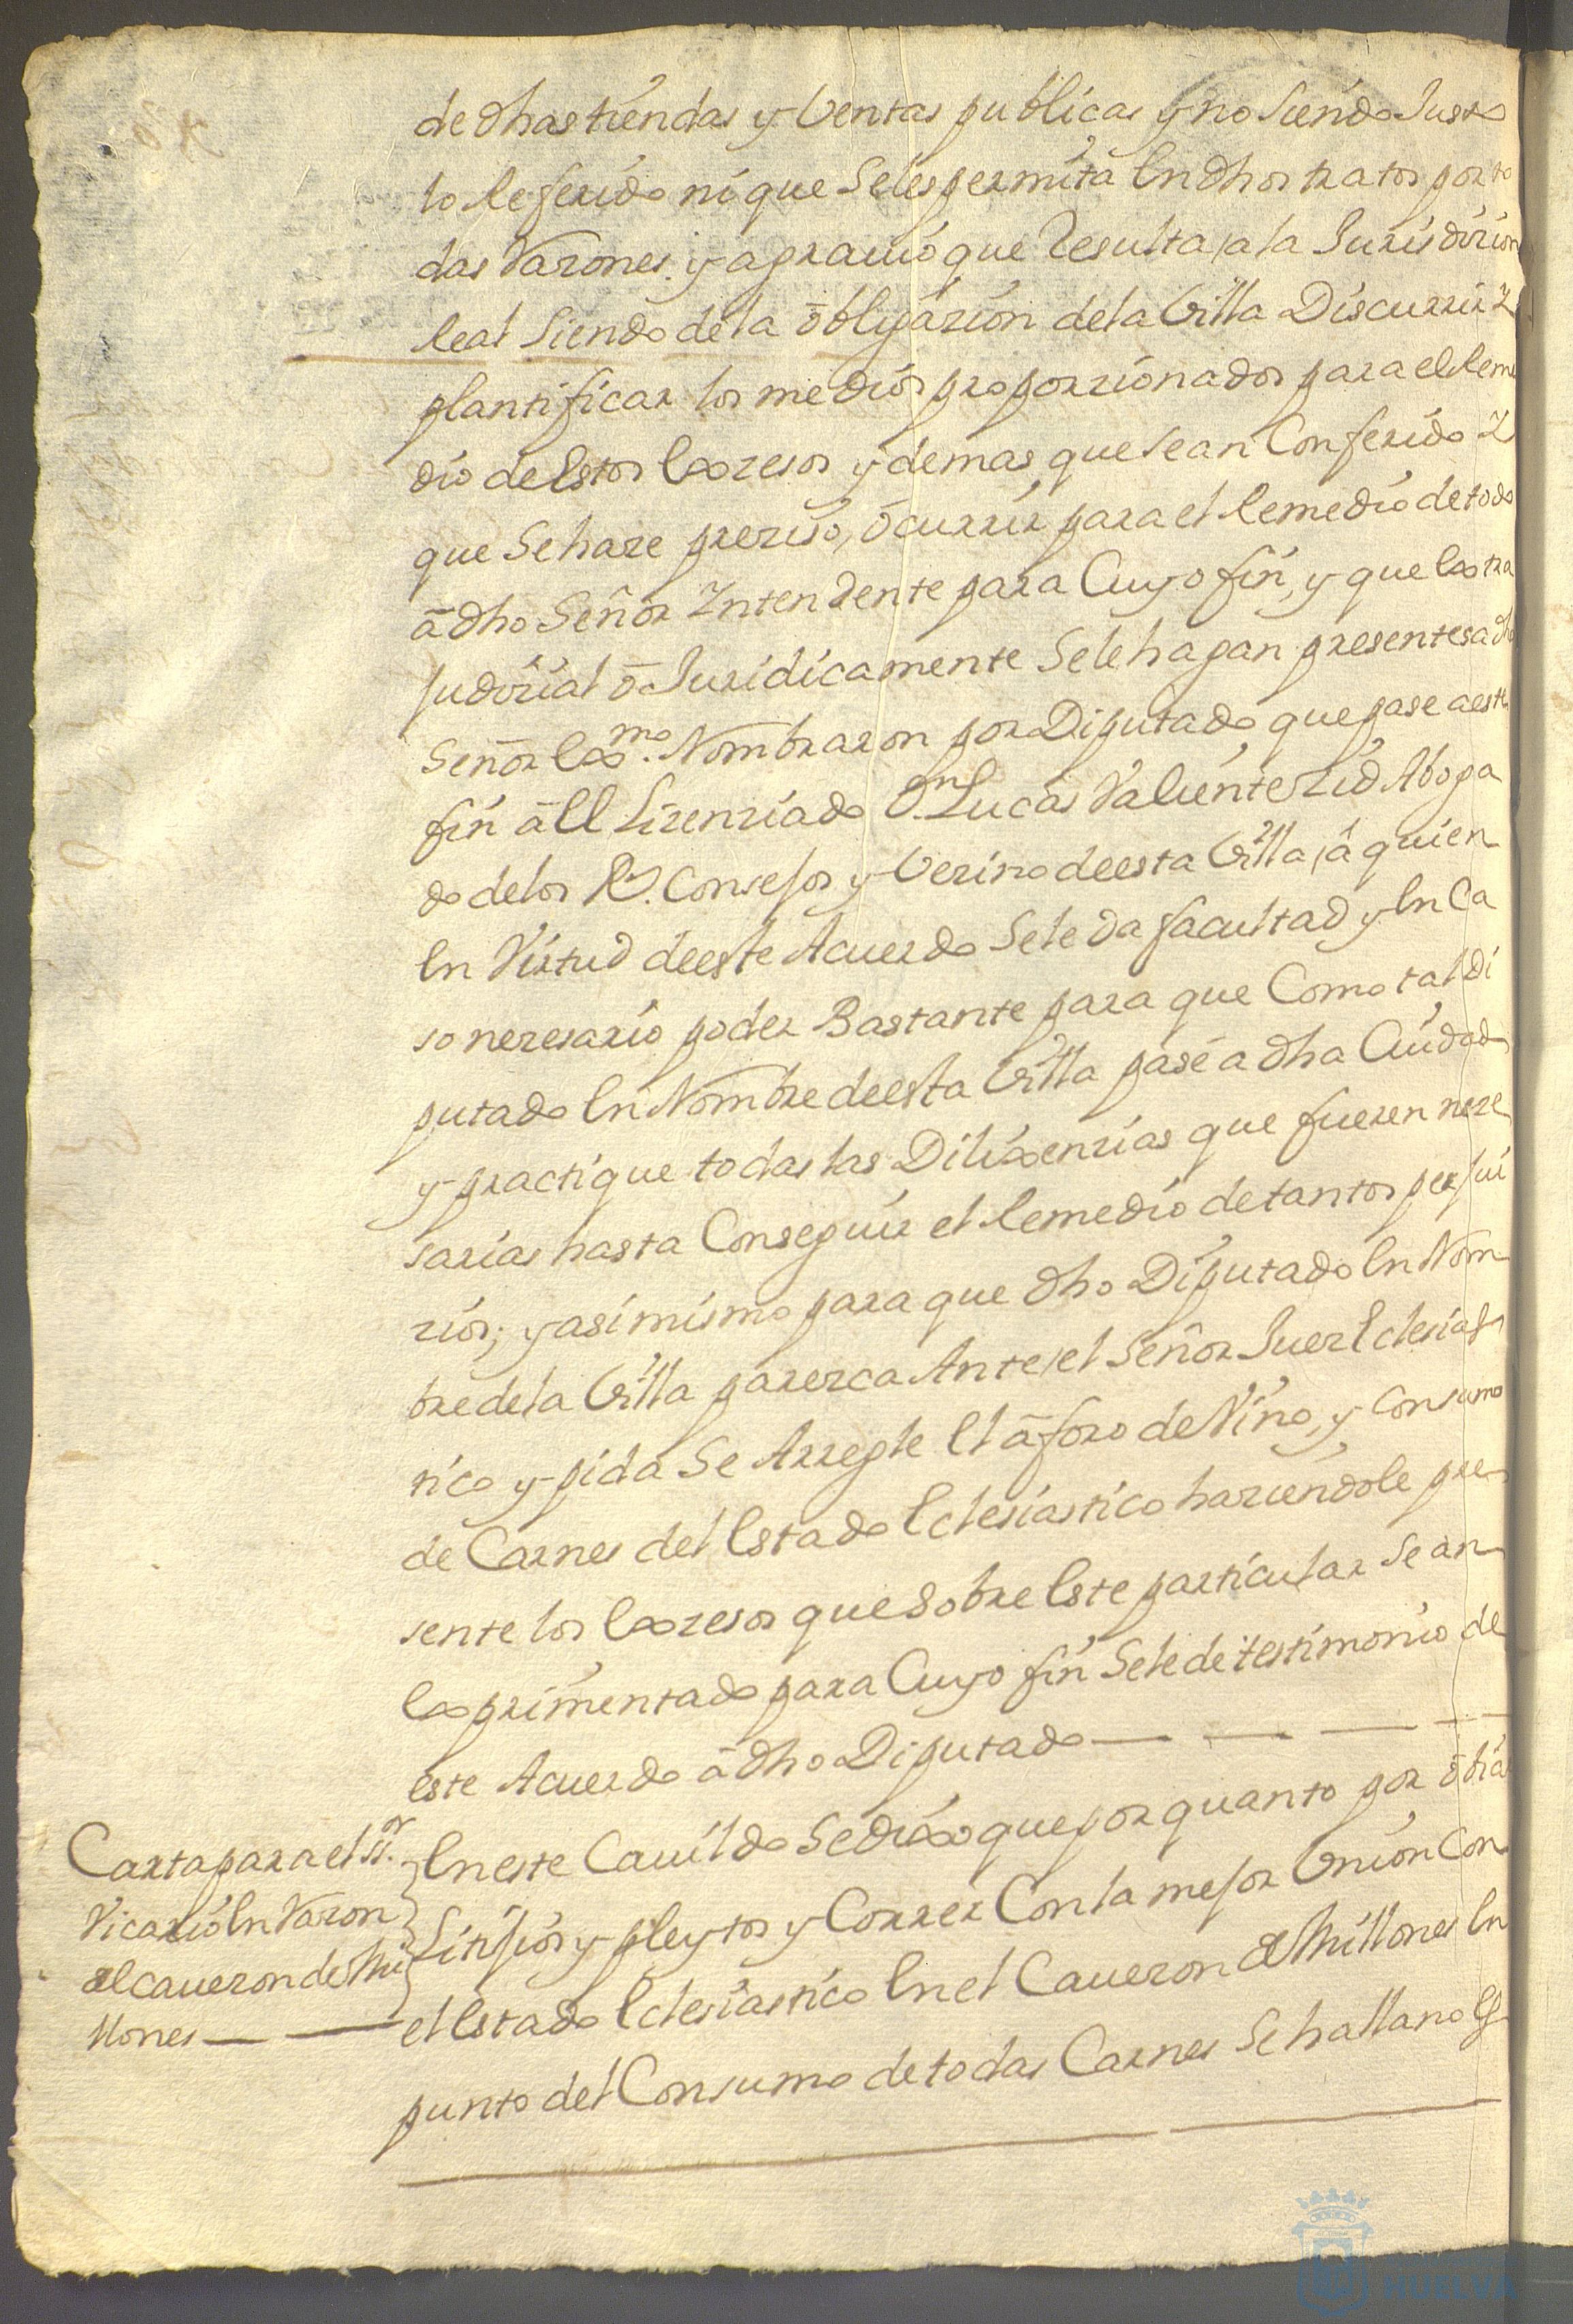 de dhas tiendas y Ventas publicas y no siendo Justo
lo Referido ni que se les permita En dhos tratos por to
das Razones y agrauio que Resulta a la Jurisdizion
Real siendo de la obligazion de la Villa Discurrir Y
plantificar los medios proporzionados para el Reme
dio de Estos Exzesos y demas que sean Conferido Y
que se haze prezisso, ocurrir para el Remedio de todo
a dho Señor Yntendente para Cuyo fin, y que Extra
judizial o Juridicamente se le hagan presentes a dho
Señor Exmo. Nombraron por Diputado que pase a este
fin a El Lizenziado Dn. Lucas Valiente Zid Aboga
do de los Rs. Consejos y Vezino de esta Villa, a quien
En Virtud de este Acuerdo se le da facultad y En Ca
so nezesario poder Bastante para que Como tal Di
putado En Nombre de esta Villa pase a dha Ciudad
y practique todas las Dilixenzias que fueren neze
sarias hasta Conseguir el Remedio de tantos perjui
zios; y asi mismo para que dho Diputado En Nom
bre de la Villa parezca Ante el Señor Juez Eclesias
tico y pida se Arregle El aforo de Vino, y Consumo
de Carnes del Estado Eclesiastico haziendole pre
sente los Exzesos que sobre Este particular se an
Exprimentado para Cuyo fin se le de testimonio de
este Acuerdo a dho Diputado
Carta para el Sr.
Vicario En Razon
del caueron de Mi
llones
En este Cauildo se dixo que por quanto por obiar
Litijios y pleytos y Correr Con la mejor Union Con
el Estado Eclesiastico En el Caueron de Millones En
punto del Consumo de todas Carnes se hallano Es
HUELVA